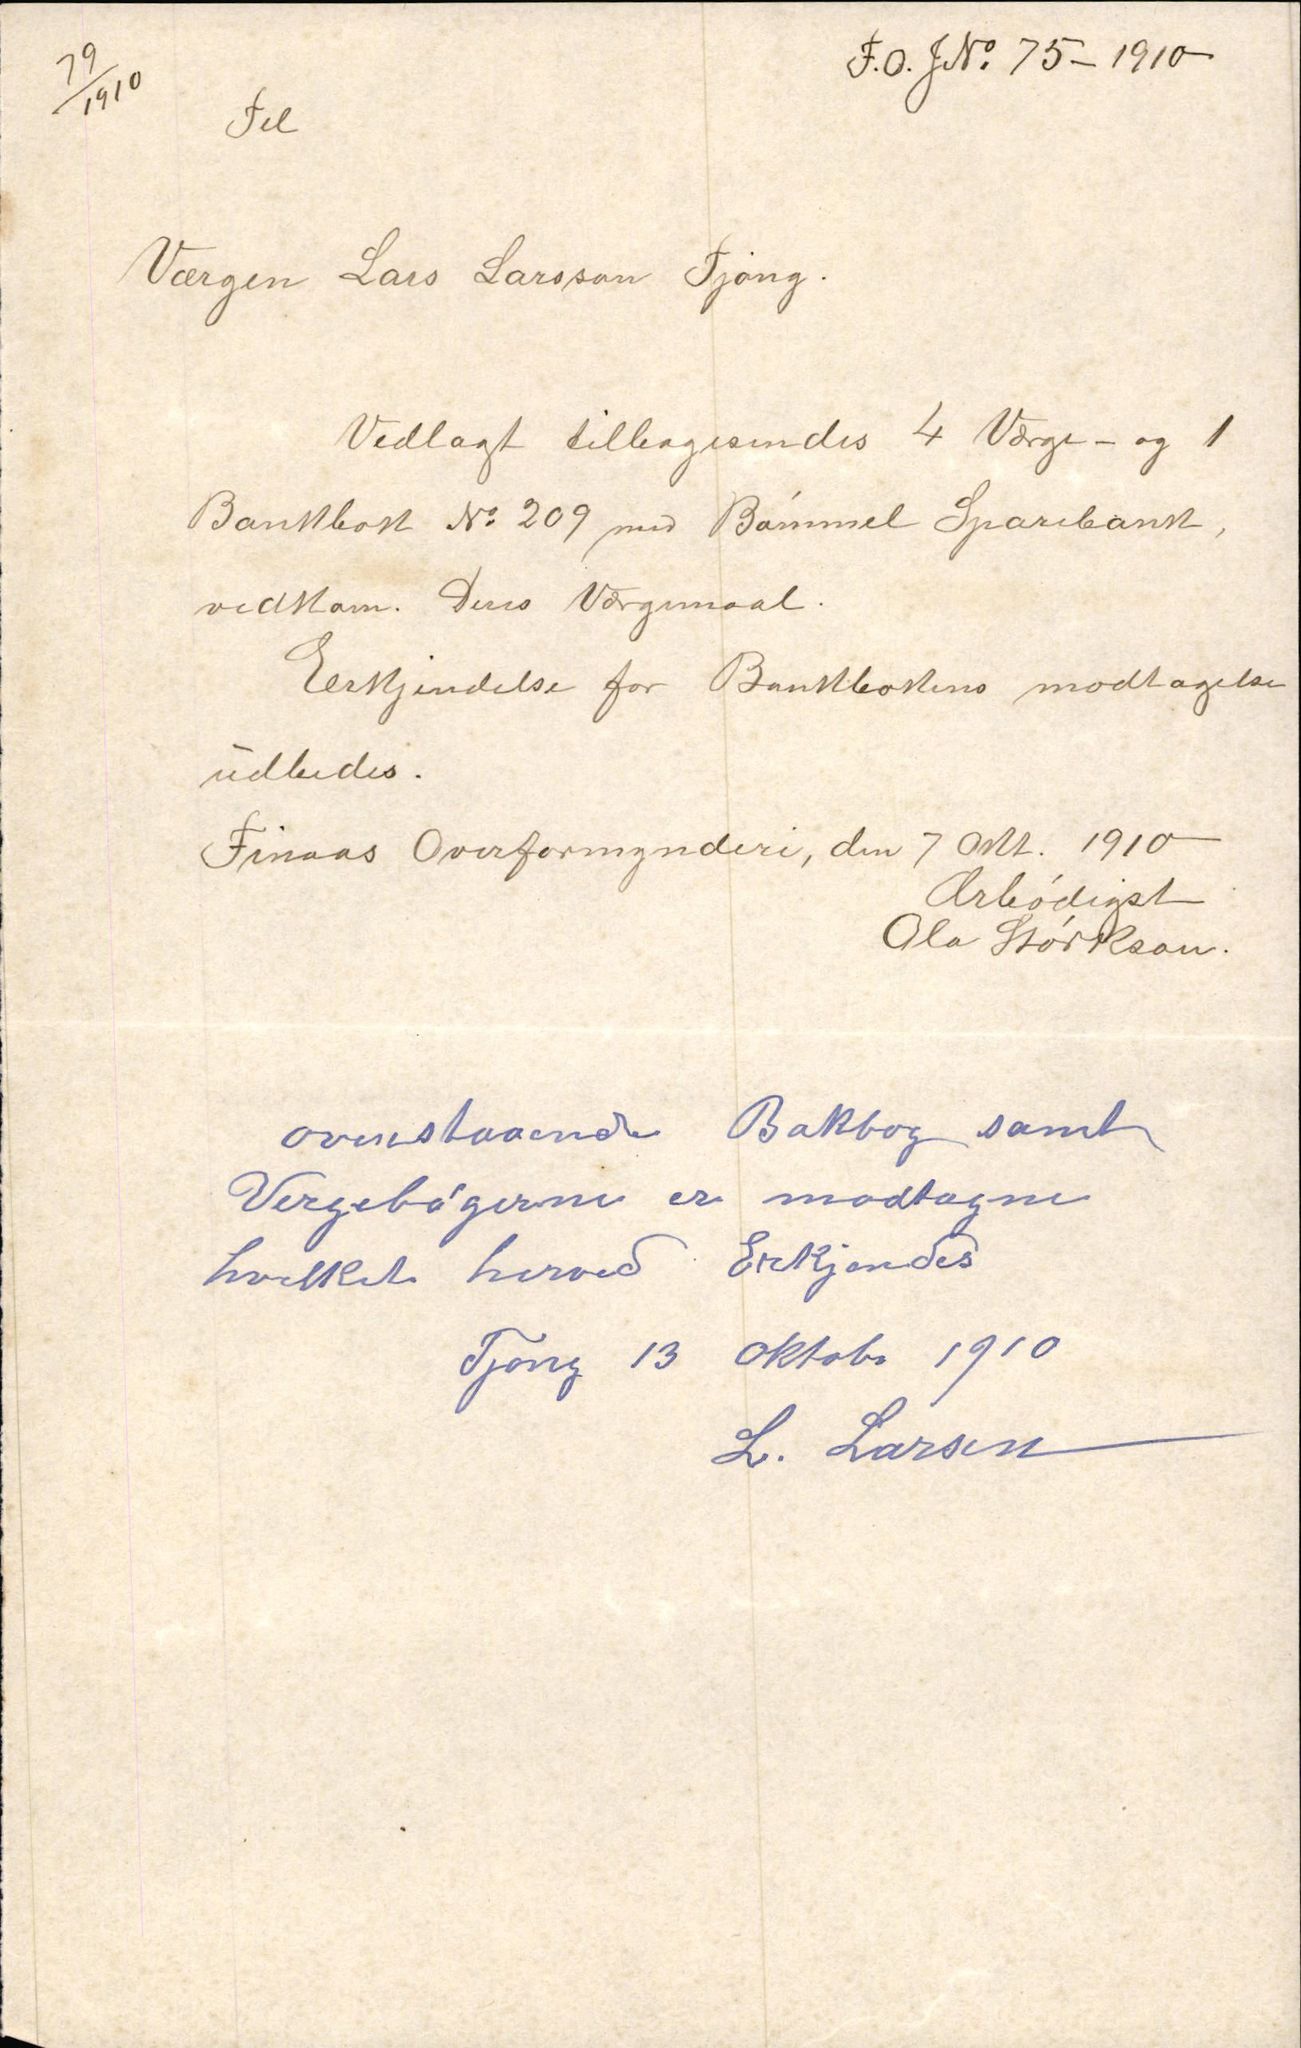 79/1910
F.O. J.No. 75 - 1910
Til
Værgen Lars Larsson Tjong.
Vedlagt tilbagesendes 4 Værge- og 1
Bankbok No. 209 med Bømmel Sparebank,
vedkom. Deres Værgemaal.
Eerkjendelse for Bankbokens modtagelse
udbedes.
Finaas Overformynderi, den 7 Okt. 1910
Ærbødigst
Ola Størkson.
ovenstaaende Bakbog samt
Vergebøgerne er modtagne
hvilket herved Erkjendes
Tjong 13 Oktobr 1910
L. Larsen